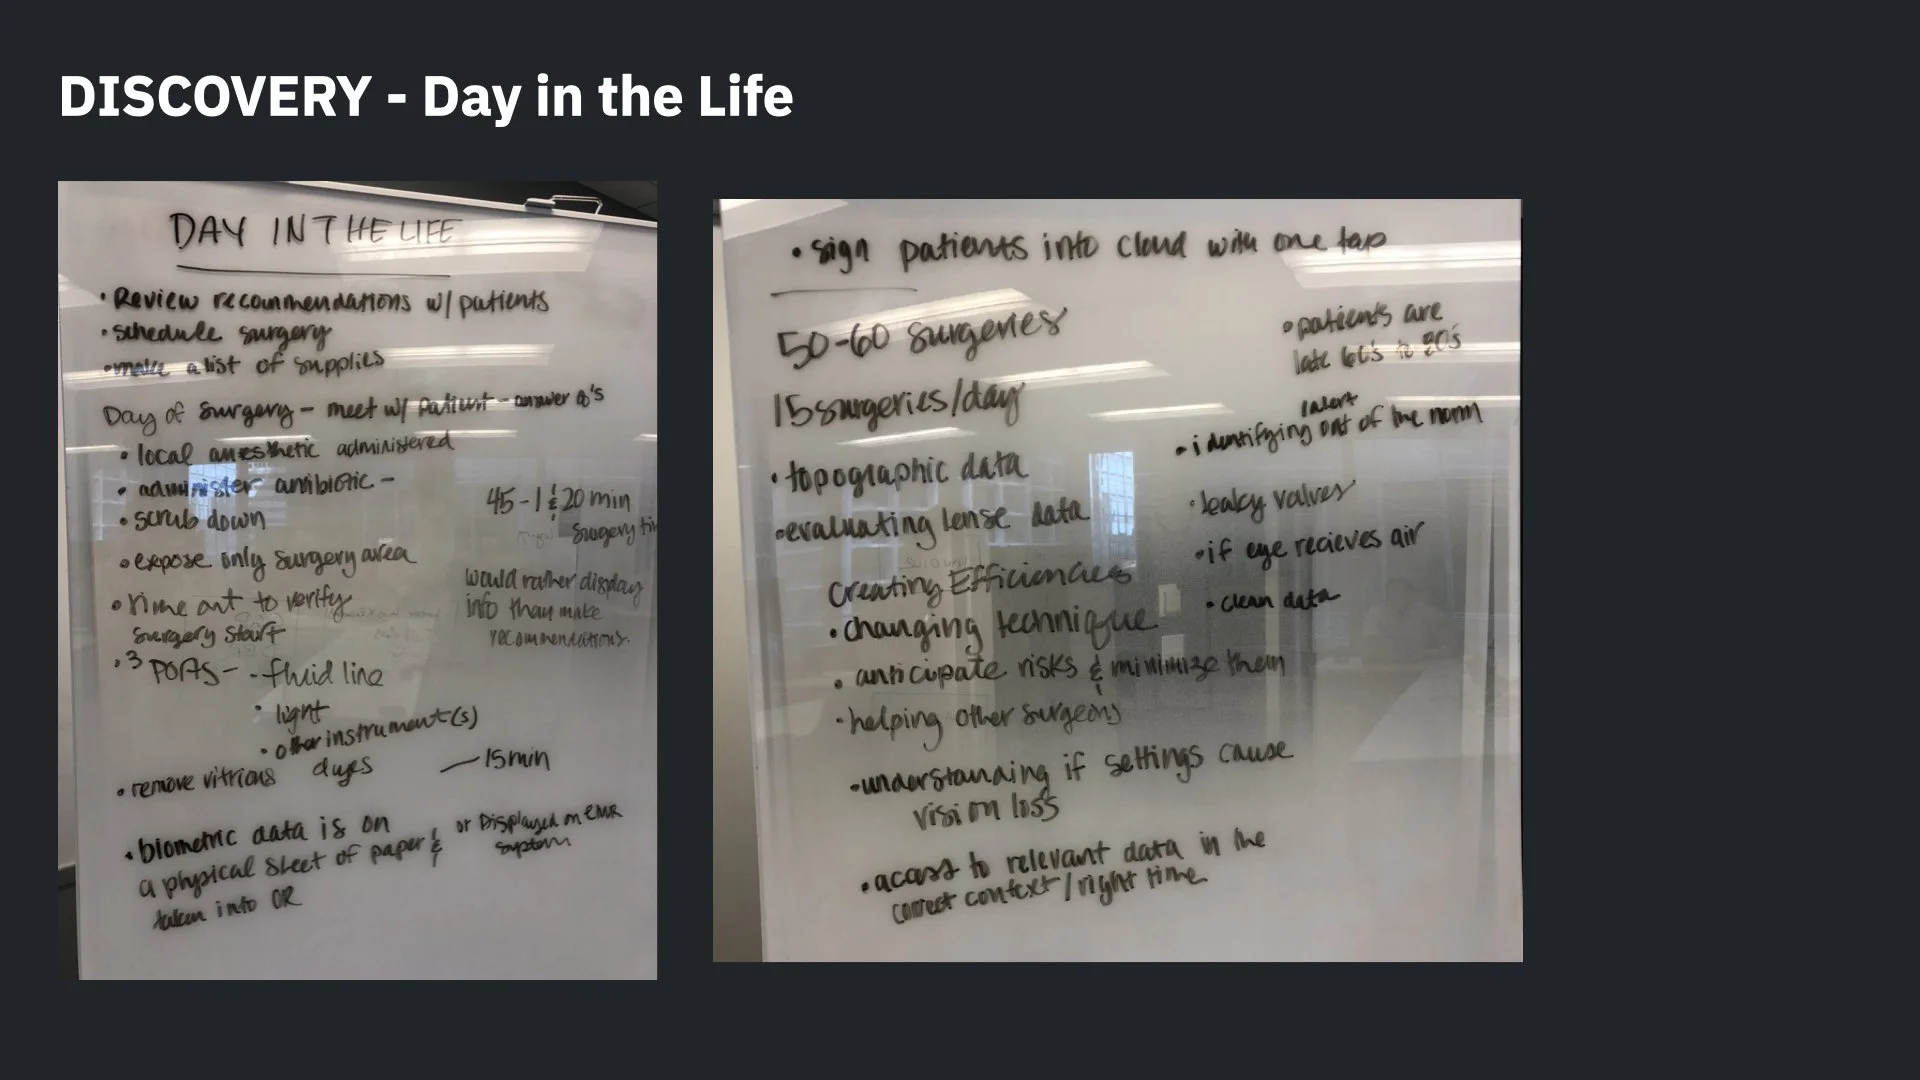 DISCOVERY - Day in the Life
DAY IN THE LIFE
• Review recommendations w/ patients
• schedule surgery
• make a list of supplies
Day of surgery - meet w/ patient - answer Q's
• local anesthetic administered
• administer antibiotic -
• scrub down
• expose only surgery area
• Time out to verify
surgery start
45 - 1 & 20 min
surgery
would rather display
info than make
recommendations.
• 3 PORTS - - fluid line
• light
• other instrument(s)
• remove vitrious dyes — 15 min
• biometric data is on
a physical sheet of paper &
taken into OR
or Displayed on EMR
system
• sign patients into cloud with one tap
50-60 surgeries
15 surgeries/day
• topographic data
• evaluating lense data
Creating Efficiencies
• changing technique
• anticipate risks & minimize them
• helping other surgeons
• understanding if settings cause
vision loss
• access to relevant data in the
correct context / right time
• patients are
late 60's to 80's
/alert
• identifying out of the norm
• leaky valves
• if eye recieves air
• clean data